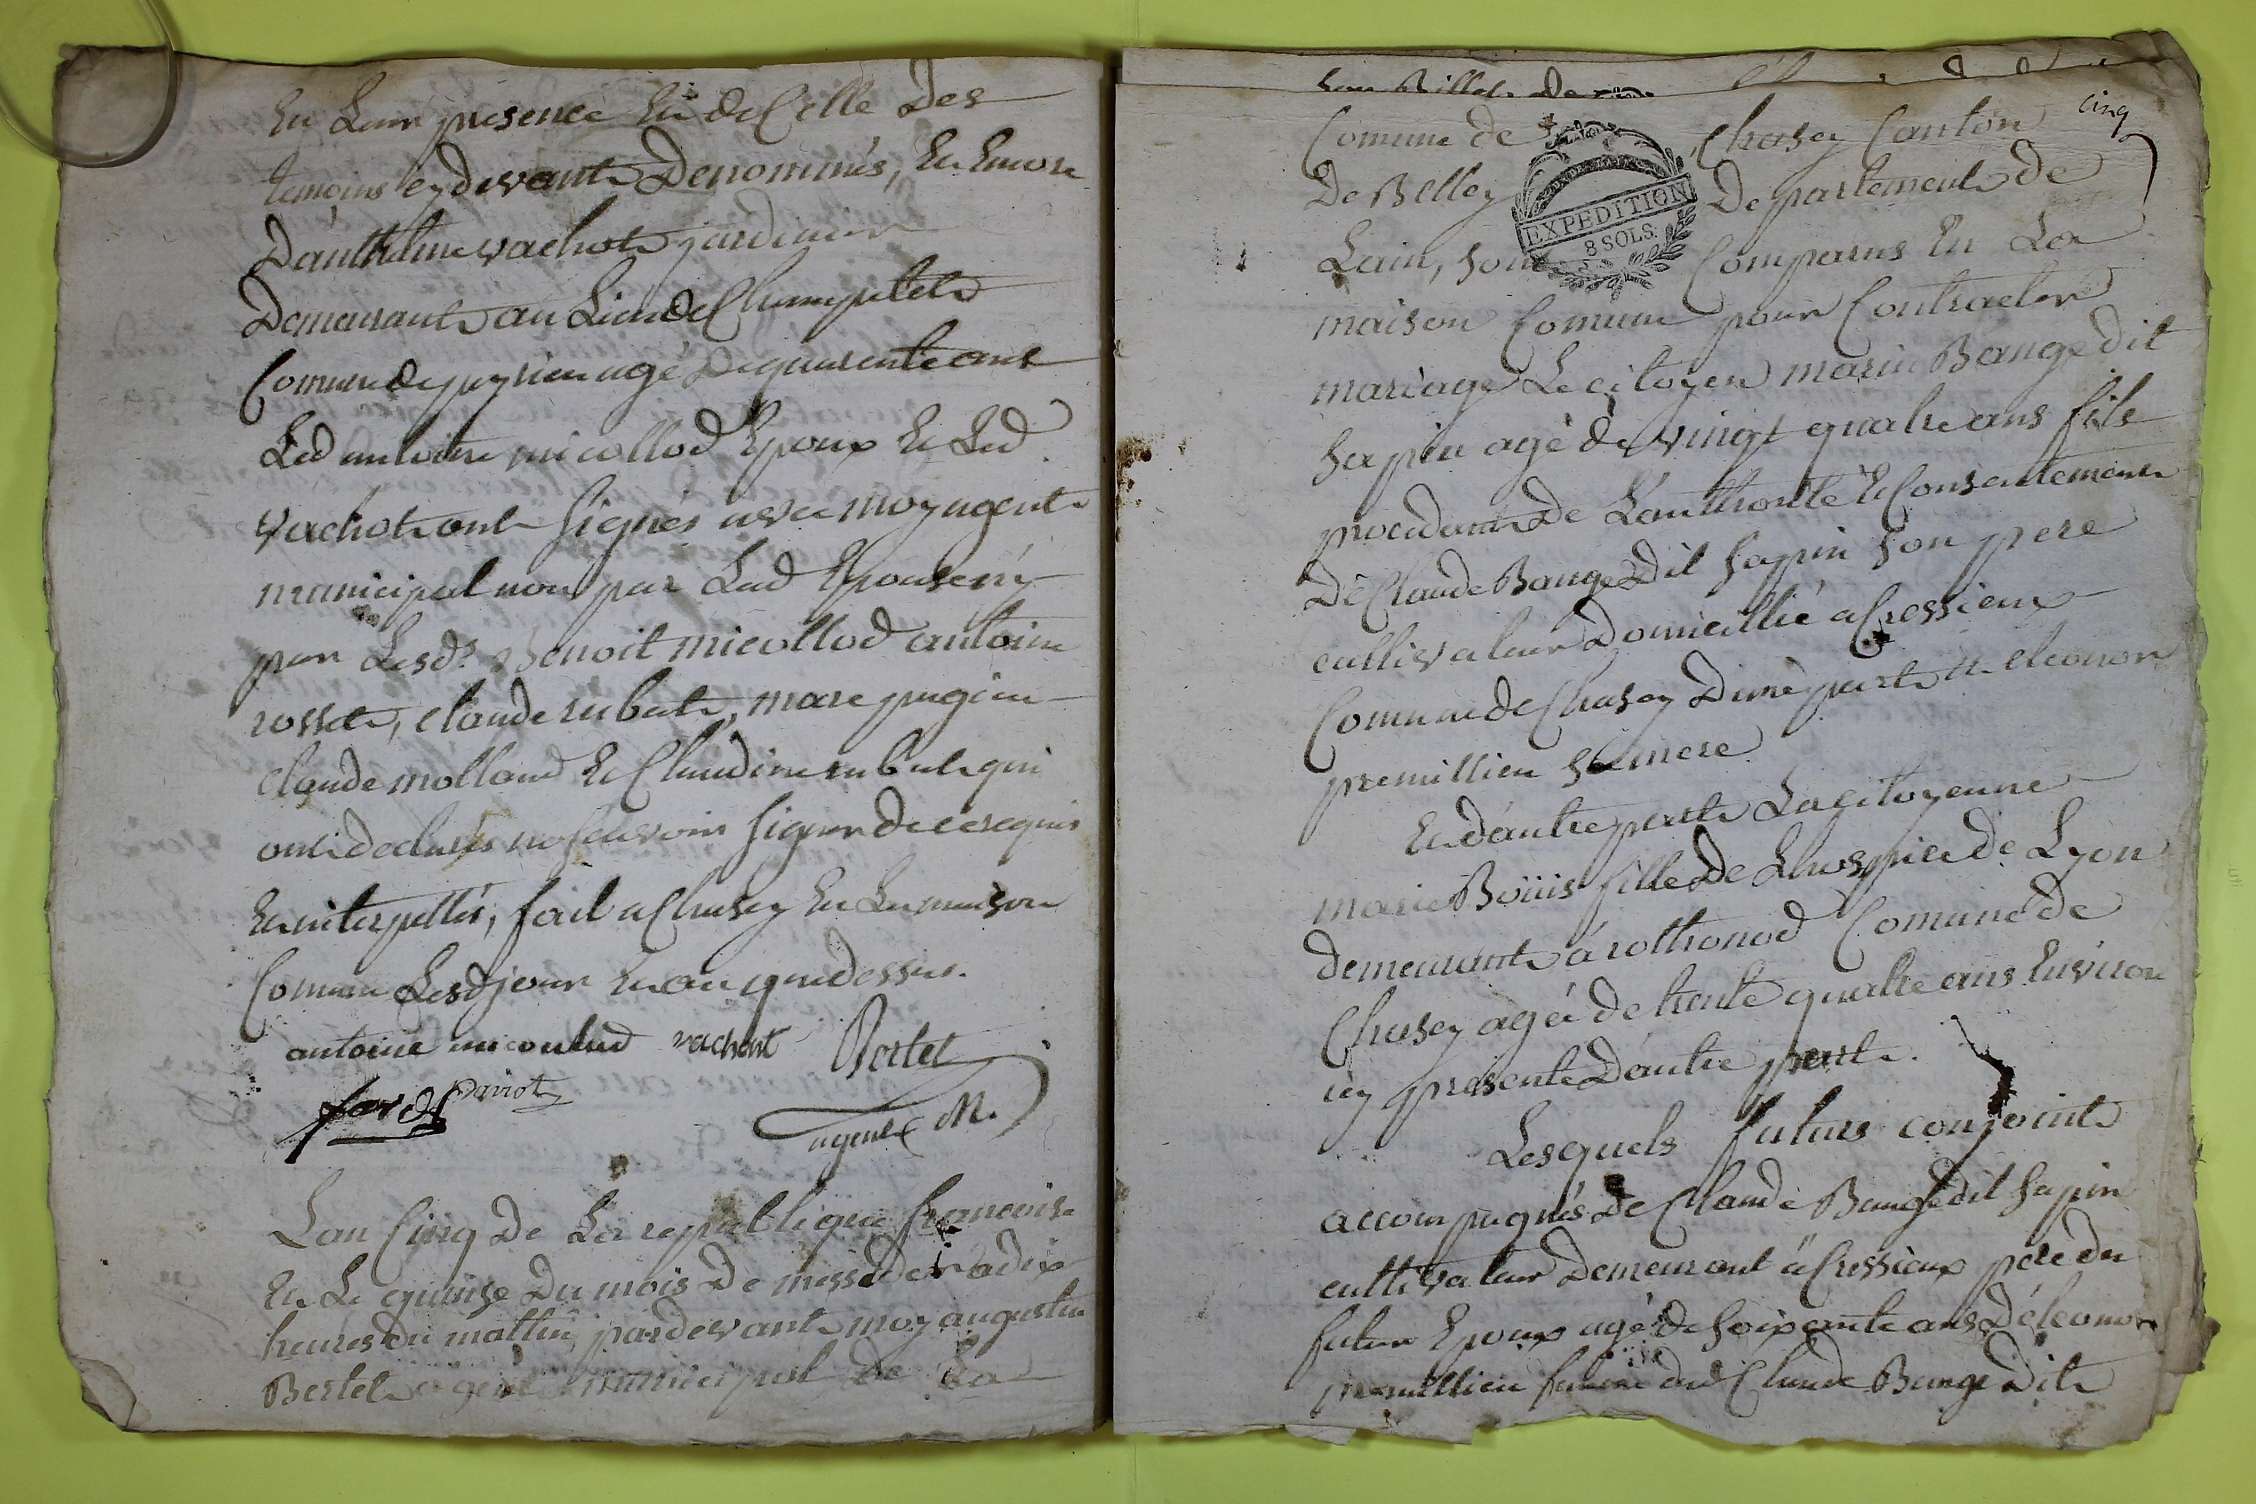 En Leur presence Et de Celle Des
temoins cy devants Denommés, Et Encore
D'anthelme vachot jardinier
Demeurant au Lieu de Champtel
Comune de peyrieu agé De quarente ans
Led antoine micollod Epoux Et Led
vachot ont signés avec moy agent
municipal non par Lad Epouse ny
par Lesds Benoit micollod antoine
rosset, claude rubat, marc pugieu
claude mollard Et Claudine rubat qui
ont declarés ne scavoir signer de ce requis
Et interpellés, fait a Chasey En La maison
Comune Lesd jour Et an que dessus.
antoine micoulud vachot Bertet
Daviot
agent M.
Lan Cinq De La republique francoise
Et Le quinse Du mois De messidor a dix
heures du mattin, pardevant moy augustin
Bertet agent municipal de La
cinq
Comune de Chasey Canton
De Belley Departement de
EXPEDITION
8 SOLS.
Lain, sont Comparus En La
maison Comune pour Contracter
mariage Le citoyen marin Bange dit
sapin agé de vingt quatre ans fils
procedant De L'authorité Et Consentement
De Claude Bange Dit sapin son pere
cultivateur Domicillié a Cressieux
Comune de Chasey D'une part Et eleonor
premillieu sa mere
Et d'autre part La citoyenne
marie Boüis fille De L'hospice de Lyon
demeurant á rothonod Comune de
Chasey agée de trente quatre ans Environ
icy presente D'autre part.
Lesquels futurs conjoints
accompagnés De Claude Bange dit sapin
cultivateur Demeurant a Cressieux pere du
futur Epoux agé de soixante ans D'éleonor
premillieu femme dud Claude Bange Dit